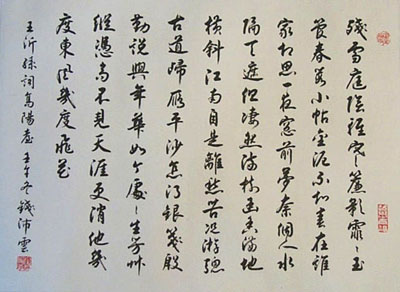 殘雪庭陰輕寒簾影霏〻玉
管春葭小帖金泥不知春在誰
家相思一夜窗前夢奈個人水
隔天遮但淒然滿樹幽香滿地
橫斜江南自是離愁苦況游驄
古道歸雁平沙怎得銀箋殷
勤說與年華如今處〻生芳草
縱憑高不見天涯更消他幾
度東風幾度飛花
王沂孫詞高陽臺 壬午冬 錢沛雲